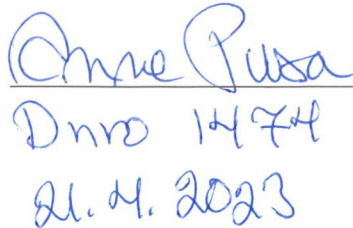 Anne Pusa
Dnro 1474
21.4.2023